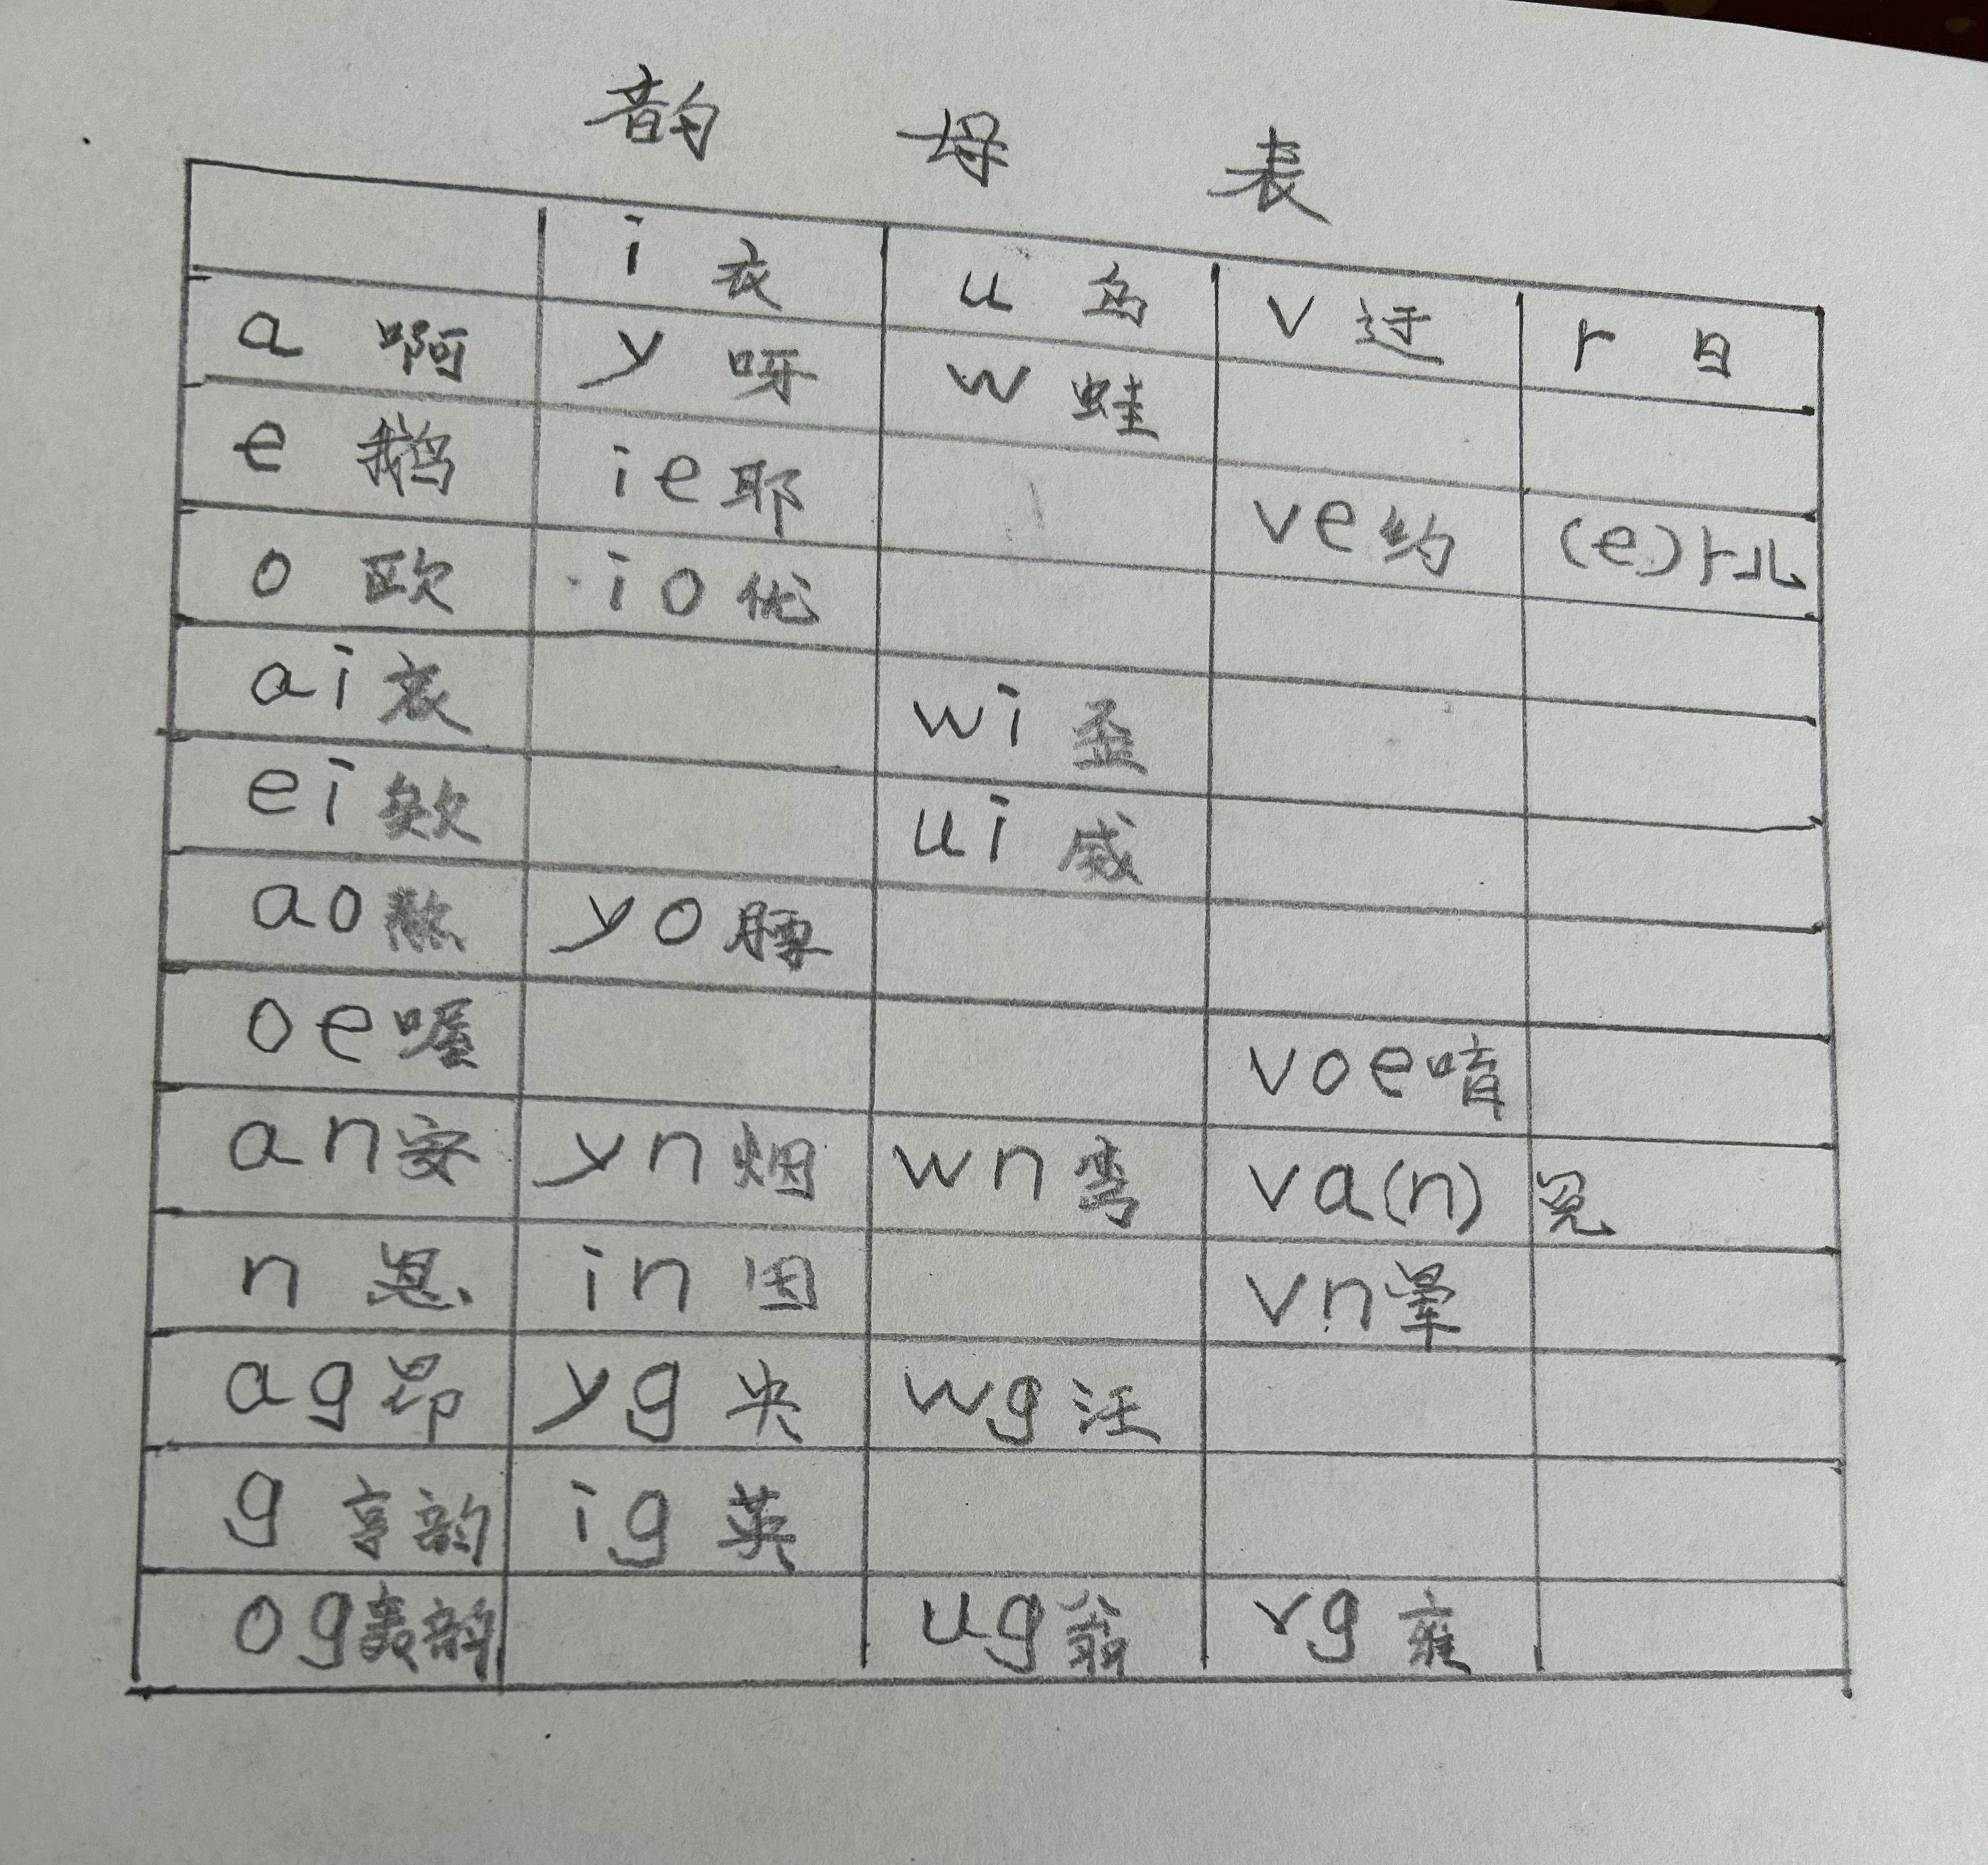 韵 母 表
i 衣 u 乌 v 迂 r 日
a 啊 y 呀 w 蛙
e 鹅 ie 耶 ve 约 (e)r 儿
o 欧 io 优
ai 衣 wi 歪
ei 欸 ui 威
ao 熬 yo 腰
oe 喔 voe 唷
an 安 yn 烟 wn 弯 va(n) 冤
n 恩 in 因 vn 晕
ag 昂 yg 央 wg 汪
g 亨韵 ig 英
og 轰韵 ug 翁 rg 雍